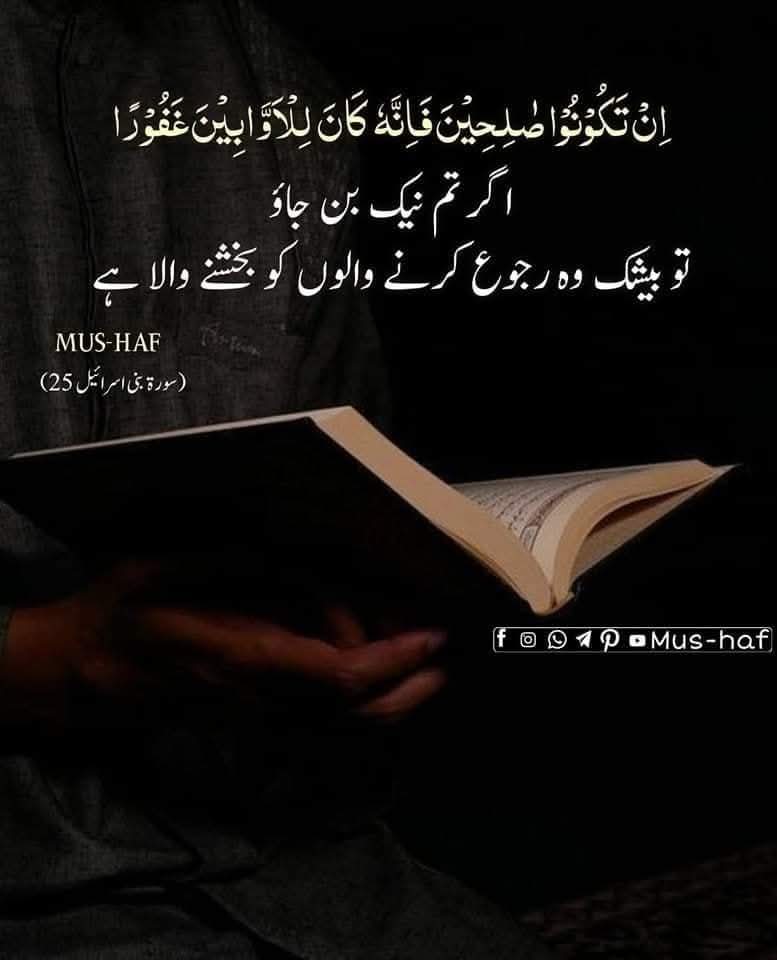 اِنْ تَكُوْنُوْا صٰلِحِيْنَ فَاِنَّهٗ كَانَ لِلْاَوَّابِيْنَ غَفُوْرًا
اگر تم نیک بن جاؤ
تو بیشک وہ رجوع کرنے والوں کو بخشنے والا ہے
MUS-HAF
(سورۃ بنی اسرائیل 25)
Mus-haf